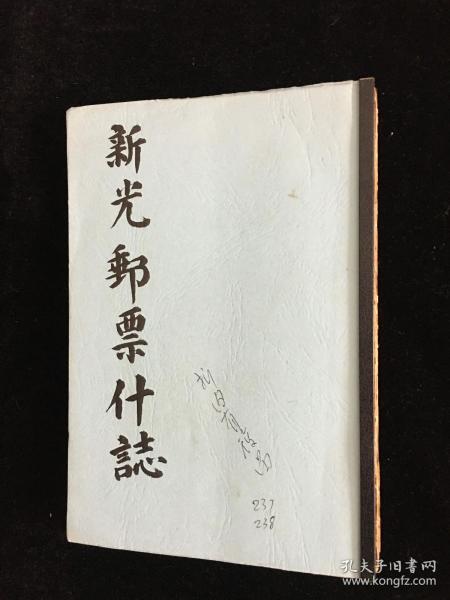 新光郵票什誌
237
238
孔夫子旧书网
www.kongfz.com